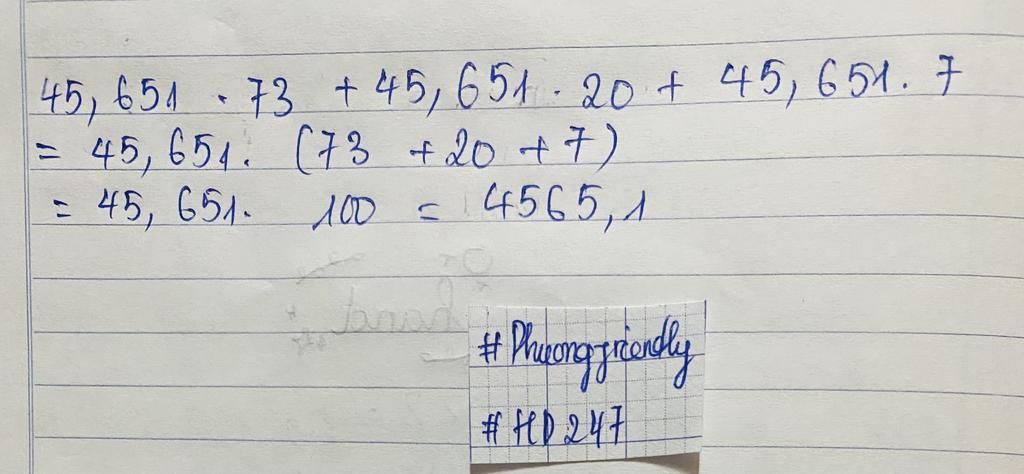 45,651 . 73 + 45,651 . 20 + 45,651 . 7
= 45,651. (73 + 20 + 7)
= 45,651. 100 = 4565,1
# Phuongfriendly
# HD247